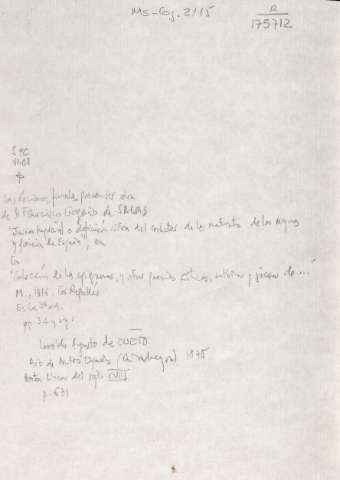 Ms-Caj. 2/15
R
175712
Las décimas finales parecen ser obra
de D. Francisco Gregorio de SALAS
"Juicio imparcial o definición crítica del carácter de los naturales de los reynos
y provincias de España", en
"Colección de los epigramas, y otras poesías críticas, satíricas y jocosas de ..."
M., 1816, Repullés
Es la 3ª ed.
pp. 34 y sigs
Leopoldo Augusto de CUETO
Bib. de Autores Españoles (Rivadeneyra) 1875
Poetas Líricos del siglo XVIII
p. 631